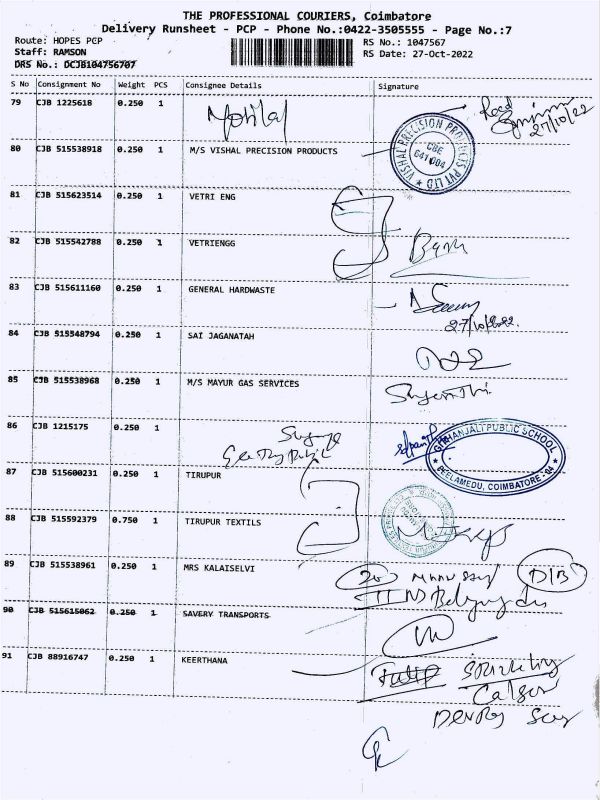 THE PROFESSIONAL COURIERS, Coimbatore
Delivery Runsheet - PCP - Phone No.:0422-3505555 - Page No.:7
Route: HOPES PCP
Staff: RAMSON
DRS No.: DCJB104756707
RS No.: 1047567
RS Date: 27-Oct-2022
S No Consignment No Weight PCS Consignee Details Signature
79 CJB 1225618 0.250 1 Motilal
27/10/22
80 CJB 515538918 0.250 1 M/S VISHAL PRECISION PRODUCTS
VISHAL PRECISION PRODUCTS PVT LTD
CBE
641 004
81 CJB 515623514 0.250 1 VETRI ENG
82 CJB 515542788 0.250 1 VETRIENGG
83 CJB 515611160 0.250 1 GENERAL HARDWASTE
27/10/2022.
84 CJB 515548794 0.250 1 SAI JAGANATAH
85 CJB 515538968 0.250 1 M/S MAYUR GAS SERVICES
86 CJB 1215175 0.250 1
PUBLIC SCHOOL
PEELAMEDU, COIMBATORE - 04
87 CJB 515600231 0.250 1 TIRUPUR
88 CJB 515592379 0.750 1 TIRUPUR TEXTILS
89 CJB 515538961 0.250 1 MRS KALAISELVI
D/B
90 CJB 515615062 0.250 1 SAVERY TRANSPORTS
91 CJB 88916747 0.250 1 KEERTHANA